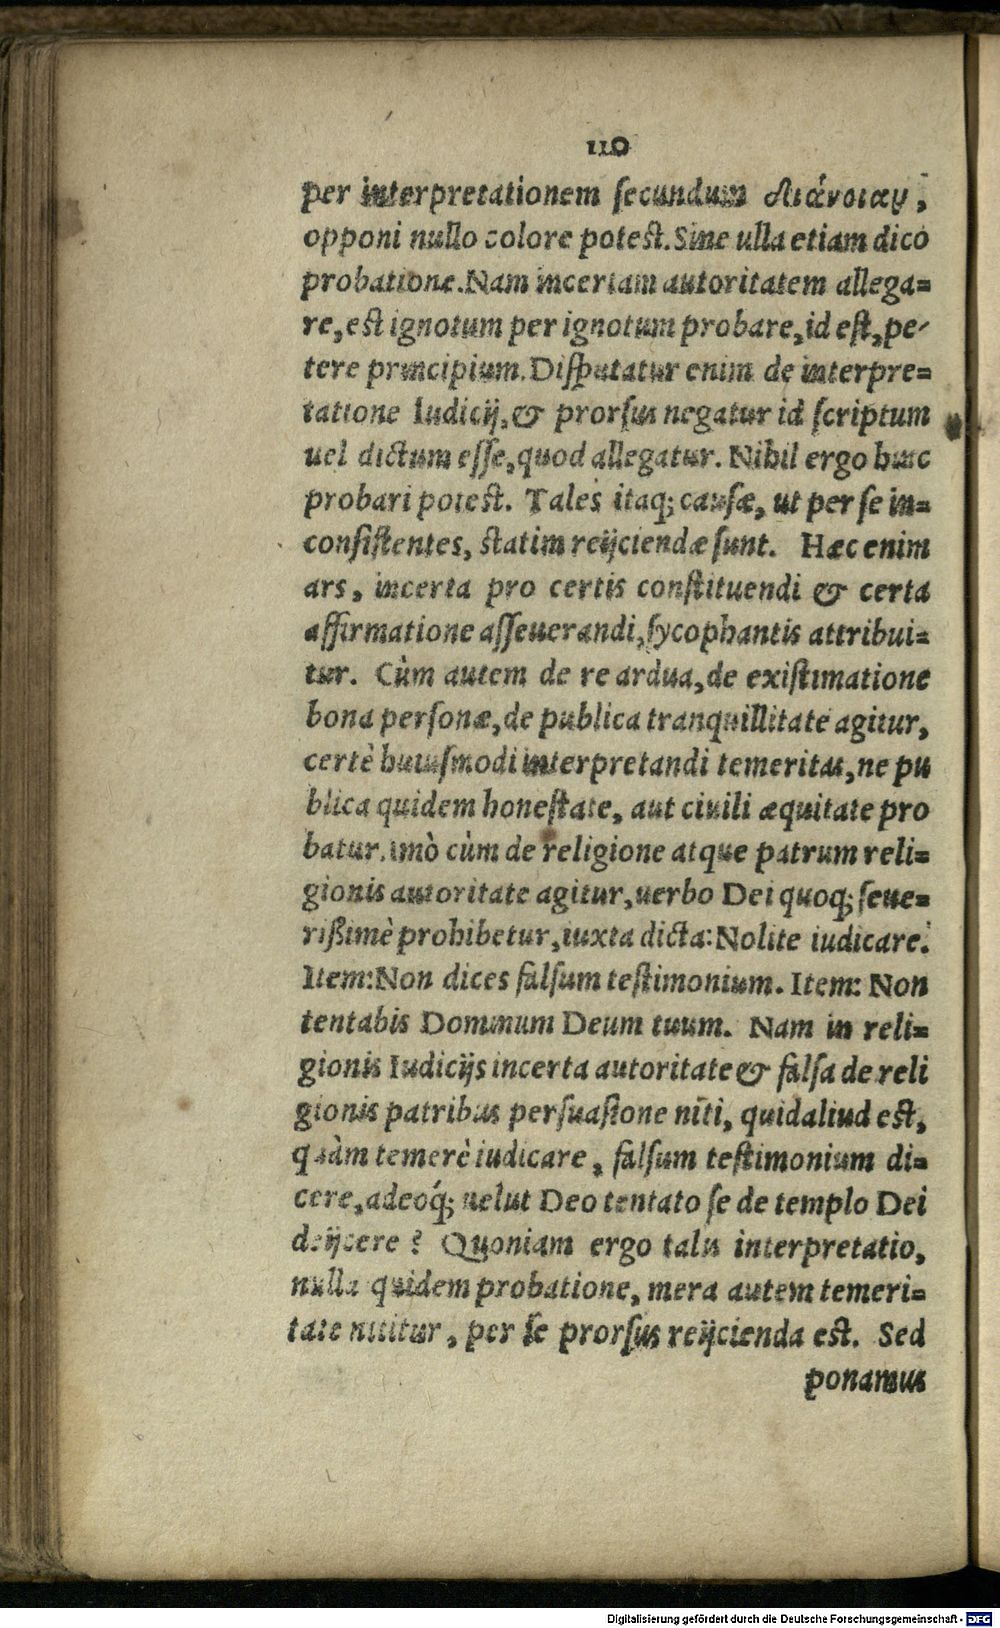 110
per interpretationem secundum διάνοιαν,
opponi nullo colore potest. Sine ulla etiam dico
probatione. Nam incertam autoritatem allega=
re, est ignotum per ignotum probare, id est, pe-
tere principium. Disputatur enim de interpre=
tatione Iudicij, & prorsus negatur id scriptum
uel dictum esse, quod allegatur. Nihil ergo hinc
probari potest. Tales itaq; causæ, ut per se in=
consistentes, statim reijciendæ sunt. Hæc enim
ars, incerta pro certis constituendi & certa
affirmatione asseuerandi, sycophantis attribui=
tur. Cùm autem de re ardua, de existimatione
bonæ personæ, de publica tranquillitate agitur,
certè huiusmodi interpretandi temeritas, ne pu
blica quidem honestate, aut ciuili æquitate pro
batur. imò cùm de religione atque patrum reli=
gionis autoritate agitur, uerbo Dei quoq; seue=
rißimè prohibetur, iuxta dicta: Nolite iudicare.
Item: Non dices falsum testimonium. Item: Non
tentabis Dominum Deum tuum. Nam in reli=
gionis Iudicijs incerta autoritate & falsa de reli
gionis patribus persuasione niti, quid aliud est,
quàm temerè iudicare, falsum testimonium di=
cere, adeoq́; uelut Deo tentato se de templo Dei
deijcere? Quoniam ergo talis interpretatio,
nulla quidem probatione, mera autem temeri=
tate nititur, per se prorsus reijcienda est. Sed
ponamus
Digitalisierung gefördert durch die Deutsche Forschungsgemeinschaft - DFG